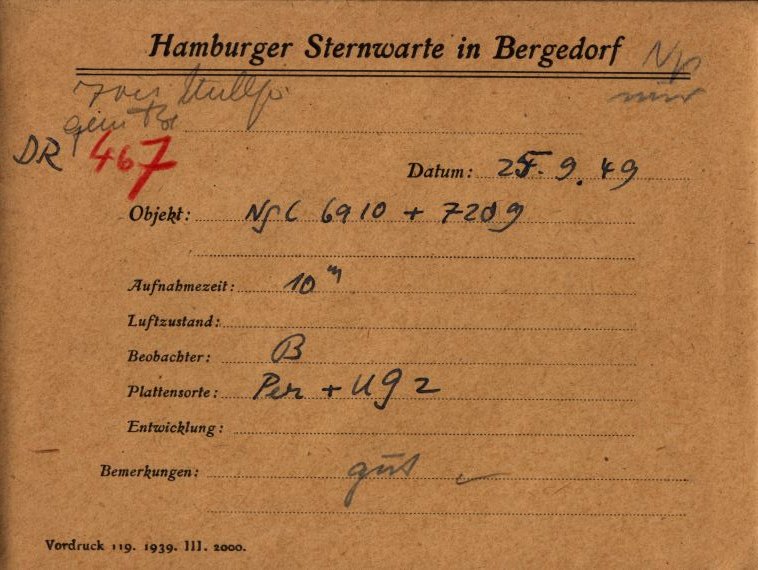 Hamburger Sternwarte in Bergedorf
DR 467
Datum: 25. 9. 49
Objekt: NgC 6910 + 7209
Aufnahmezeit: 10 m
Luftzustand:
Beobachter: B
Plattensorte: Per + UG 2
Entwicklung:
Bemerkungen: gut
Vordruck 119. 1939. III. 2000.